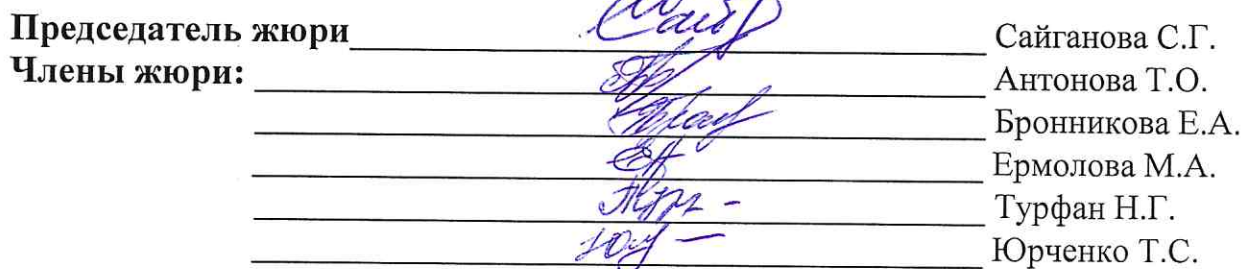 Председатель жюри Сайганова С.Г.
Члены жюри: Антонова Т.О.
Бронникова Е.А.
Ермолова М.А.
Турфан Н.Г.
Юрченко Т.С.